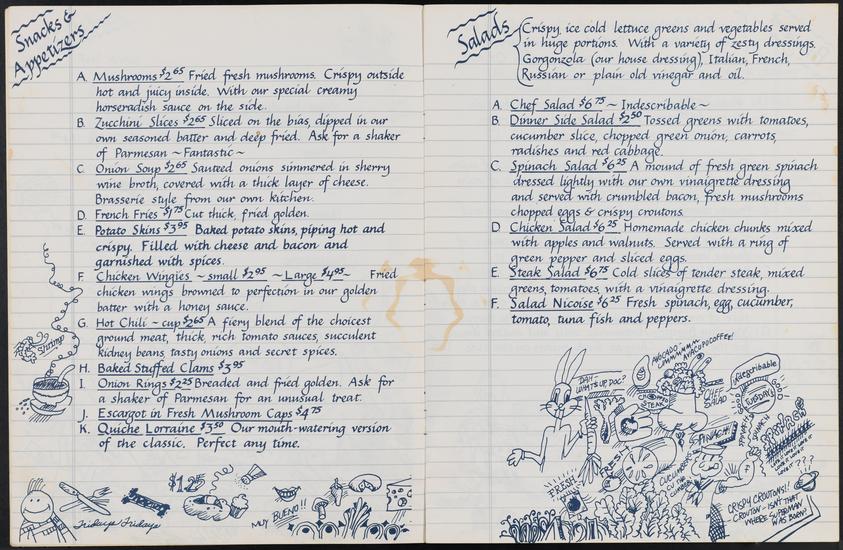 Snacks &
Appetizers
A. Mushrooms $2.65 Fried fresh mushrooms. Crispy outside
hot and juicy inside. With our special creamy
horseradish sauce on the side.
B. Zucchini Slices $2.65 Sliced on the bias, dipped in our
own seasoned batter and deep fried. Ask for a shaker
of Parmesan ~ Fantastic ~
C. Onion Soup $2.65 Sauteed onions simmered in sherry
wine broth, covered with a thick layer of cheese.
Brasserie style from our own kitchen.
D. French Fries $1.75 Cut thick, fried golden.
E. Potato Skins $3.95 Baked potato skins, piping hot and
crispy. Filled with cheese and bacon and
garnished with spices.
F. Chicken Wingies ~ small $2.95 ~ Large $4.95 ~ Fried
chicken wings browned to perfection in our golden
batter with a honey sauce.
G. Hot Chili ~ cup $2.65 A fiery blend of the choicest
ground meat, thick, rich tomato sauces, succulent
kidney beans, tasty onions and secret spices.
H. Baked Stuffed Clams $3.95
I. Onion Rings $2.25 Breaded and fried golden. Ask for
a shaker of Parmesan for an unusual treat.
J. Escargot in Fresh Mushroom Caps $4.75
K. Quiche Lorraine $3.50 Our mouth-watering version
of the classic. Perfect any time.
Shrimp
Fridays Fridays
$1.25
MUY BUENO!!
Salads
Crispy, ice cold lettuce greens and vegetables served
in huge portions. With a variety of zesty dressings.
Gorgonzola (our house dressing), Italian, French,
Russian or plain old vinegar and oil.
A. Chef Salad $6.75 ~ Indescribable ~
B. Dinner Side Salad $2.50 Tossed greens with tomatoes,
cucumber slice, chopped green onion, carrots,
radishes and red cabbage.
C. Spinach Salad $6.25 A mound of fresh green spinach
dressed lightly with our own vinaigrette dressing
and served with crumbled bacon, fresh mushrooms
chopped eggs & crispy croutons.
D. Chicken Salad $6.25 Homemade chicken chunks mixed
with apples and walnuts. Served with a ring of
green pepper and sliced eggs.
E. Steak Salad $6.75 Cold slices of tender steak, mixed
greens, tomatoes, with a vinaigrette dressing.
F. Salad Nicoise $6.25 Fresh spinach, egg, cucumber,
tomato, tuna fish and peppers.
DAH-
WHATS UP, DOC?
AVOCADO
CHEF
SALAD
indescribable
TUESDAY
STEAK
SPINACH!
FRESH
CRISPY CROUTONS!!
CROUTON - ISN'T THAT
WHERE SUPERMAN
WAS BORN?